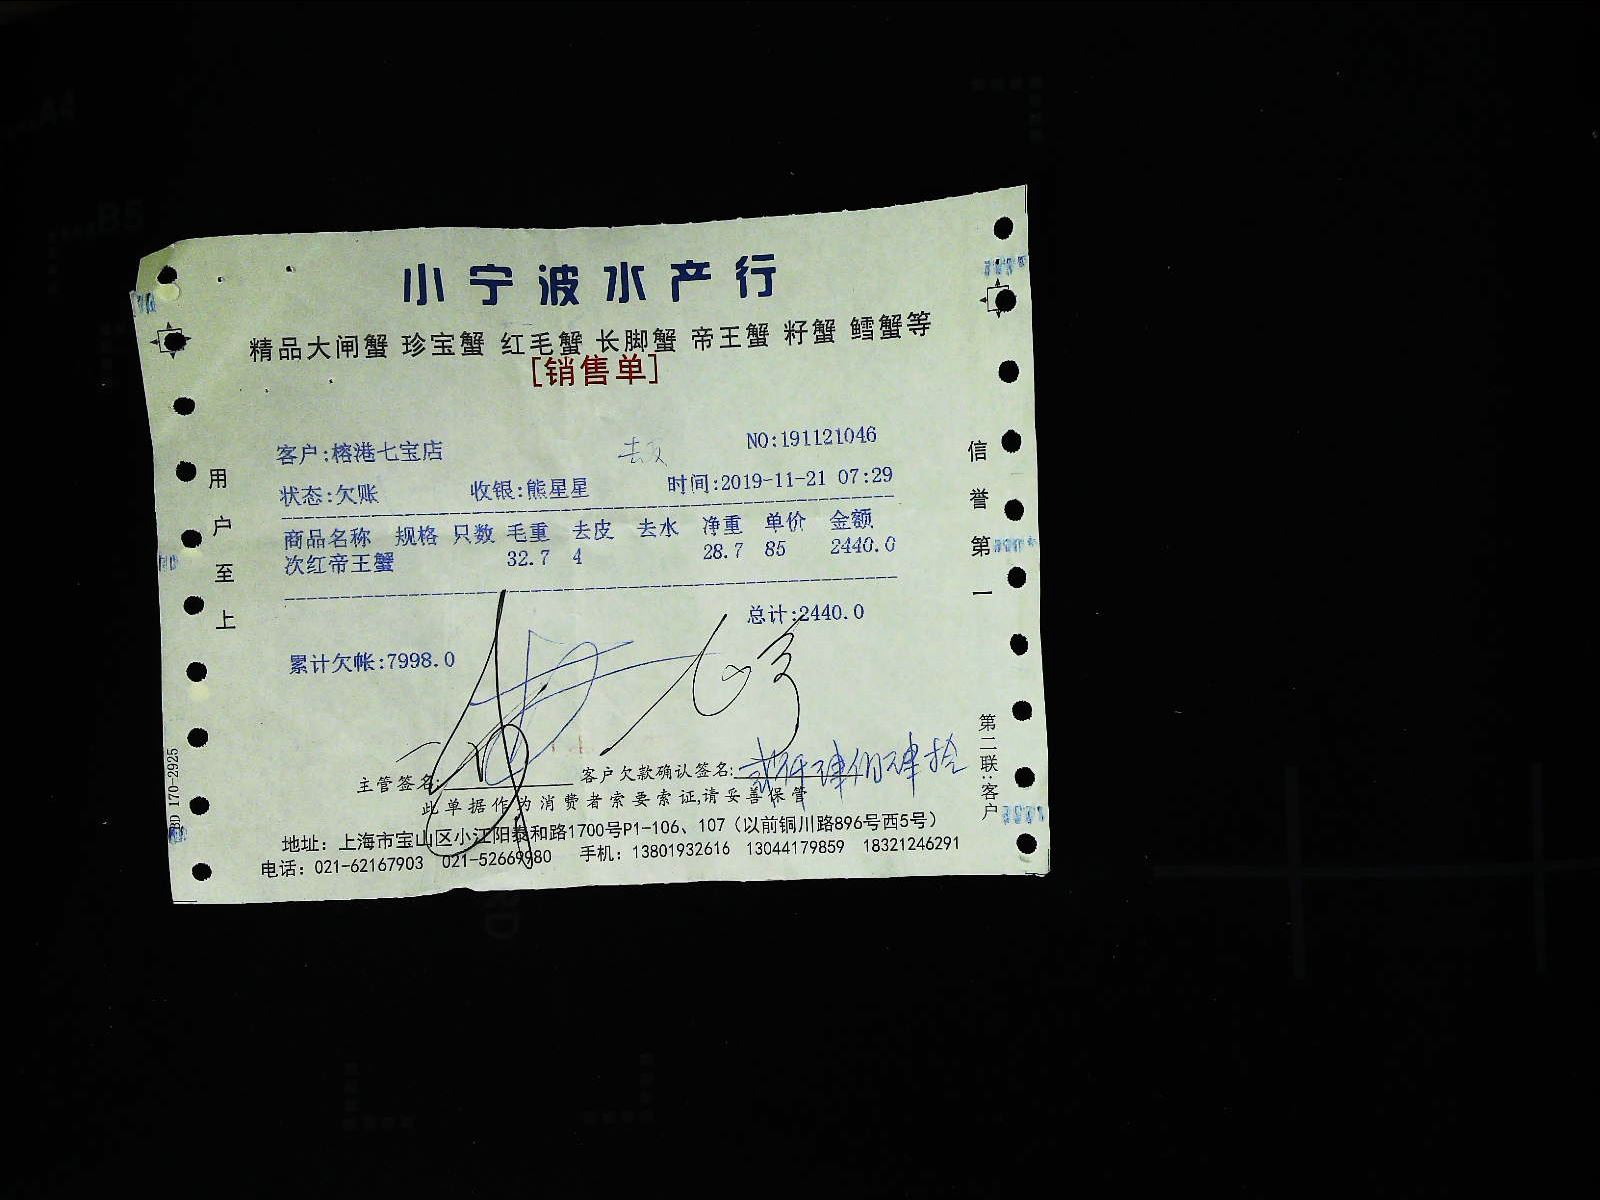 小宁波水产行
精品大闸蟹 珍宝蟹 红毛蟹 长脚蟹 帝王蟹 籽蟹 鳕蟹等
[销售单]
客户:榕港七宝店 NO:191121046
状态:欠账 收银:熊星星 时间:2019-11-21 07:29
商品名称 规格 只数 毛重 去皮 去水 净重 单价 金额
次红帝王蟹 32.7 4 28.7 85 2440.0
总计:2440.0
累计欠帐:7998.0
主管签名: 客户欠款确认签名: 贰仟肆佰肆拾
此单据作为消费者索要索证,请妥善保管
地址: 上海市宝山区小江阳泰和路1700号P1-106、107 (以前铜川路896号西5号)
电话: 021-62167903 021-52669980 手机: 13801932616 13044179859 18321246291
用户至上
信誉第一
第二联:客户
170-2925